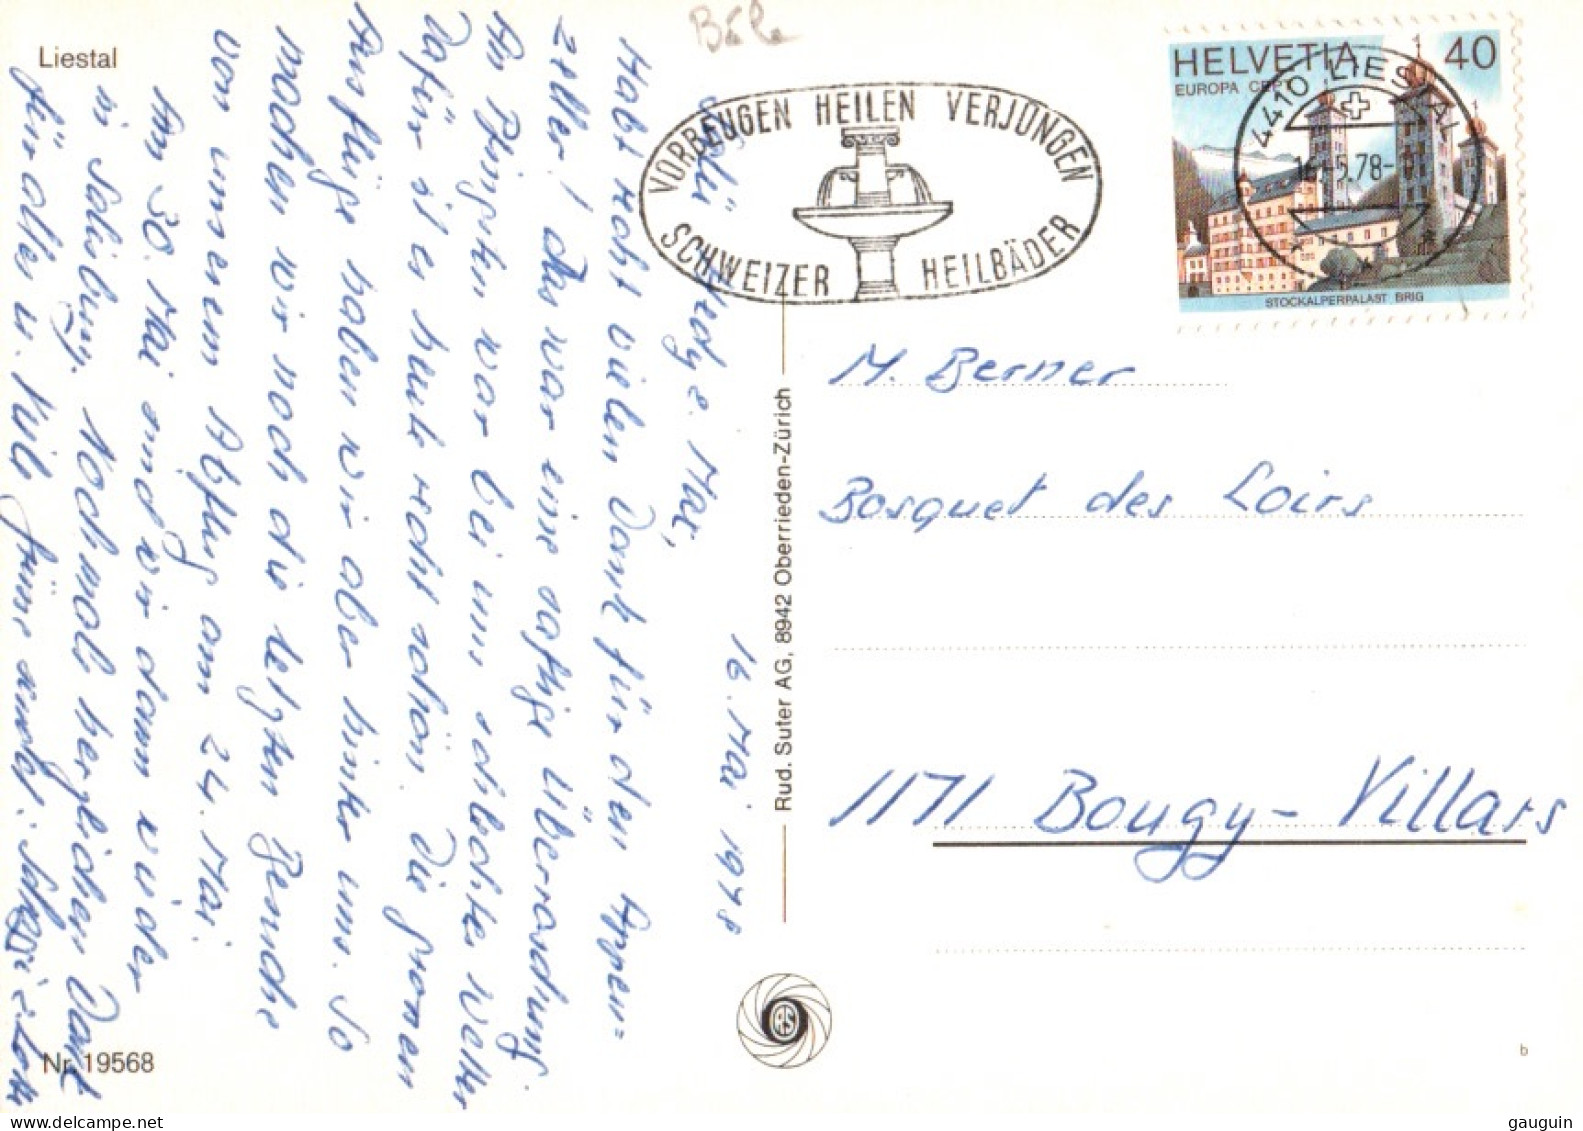 Liestal
Bâle
VORBEUGEN HEILEN VERJÜNGEN
SCHWEIZER HEILBÄDER
HELVETIA 40
EUROPA CEPT
STOCKALPERPALAST BRIG
4410 LIESTAL
16.-5.78-
M. Berner
Bosquet des Loirs
1171 Bougy-Villars
Rud. Suter AG, 8942 Oberrieden-Zürich
16. Mai 1978
Max,
Habt recht vielen Dank für den Appen=
zeller! Das war eine saftige Überraschung.
An Pfingsten war bei uns schlechtes Wetter
Dafür ist es heute recht schön. Die grossen
Ausflüge haben wir aber hinter uns. So
machen wir noch die letzten Besuche
von unserem Abflug am 24. Mai.
Am 30. Mai sind wir dann wieder
in Salisbury. Nochmals herzlichen Dank
für alles u. viele Grüsse sendet:
Nr. 19568
RS
b
gauguin